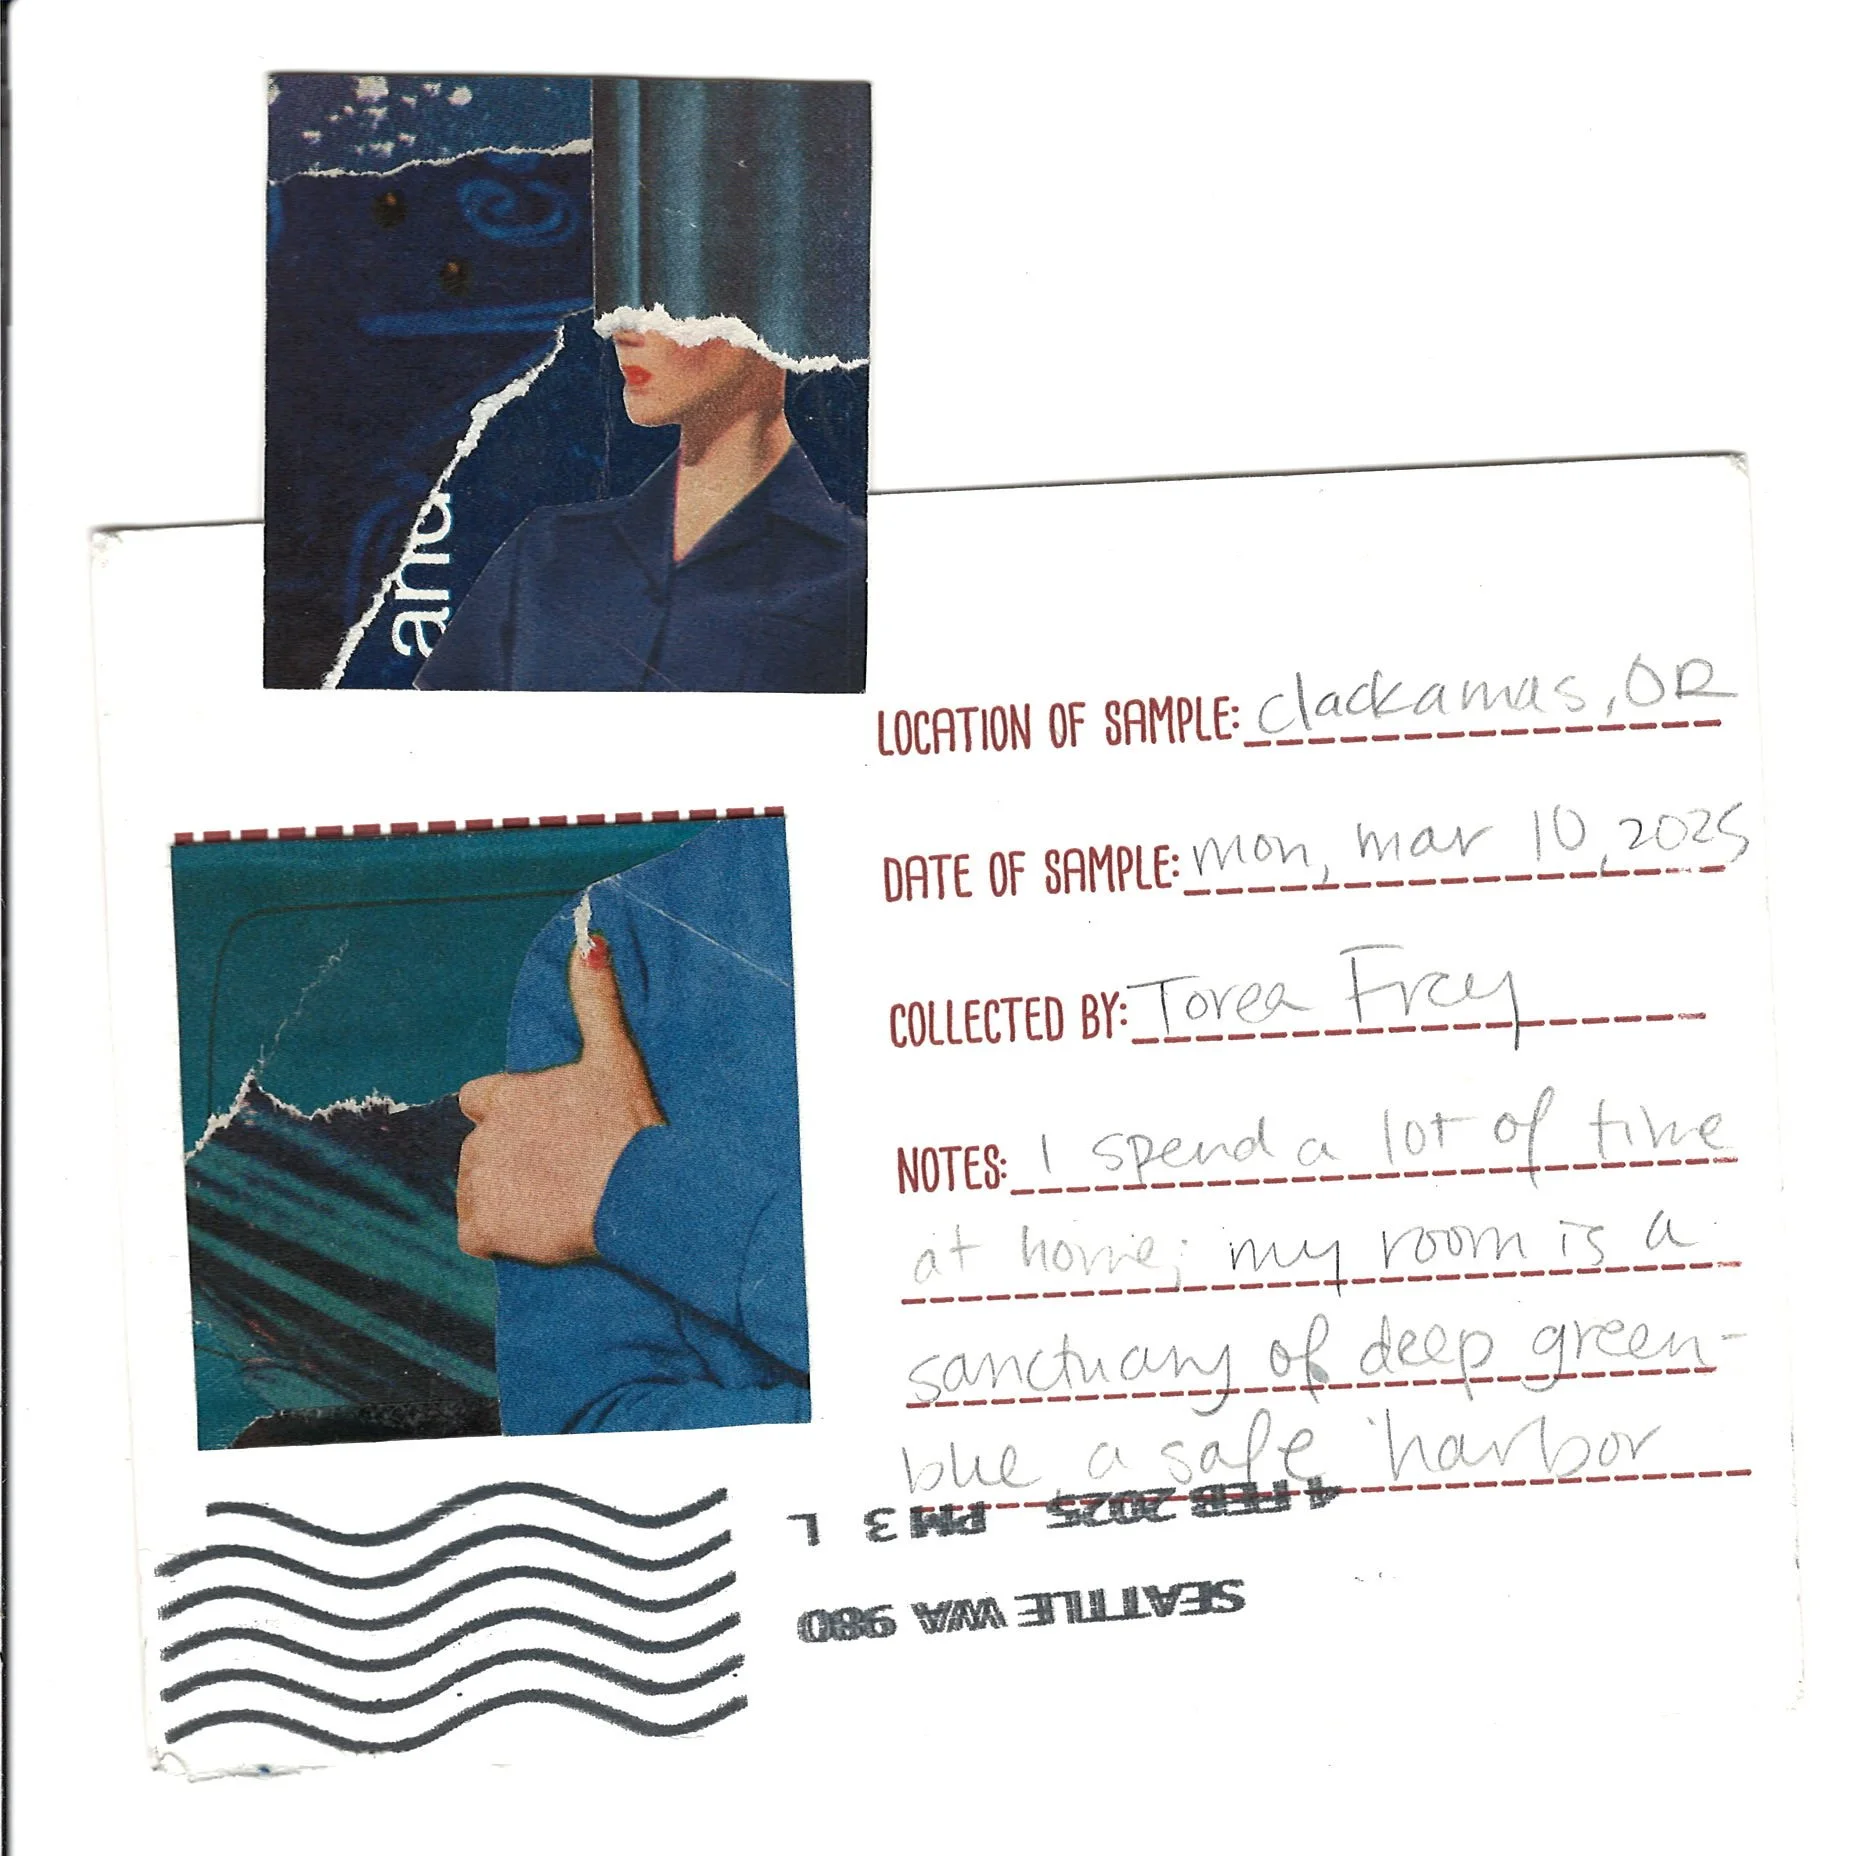 and
LOCATION OF SAMPLE: Clackamas, OR
DATE OF SAMPLE: mon, mar 10, 2025
COLLECTED BY: Torea Frey
NOTES: I spend a lot of time
at home; my room is a
sanctuary of deep green-
blue, a safe harbor
4 FEB 2025 PM 3 L
SEATTLE WA 980